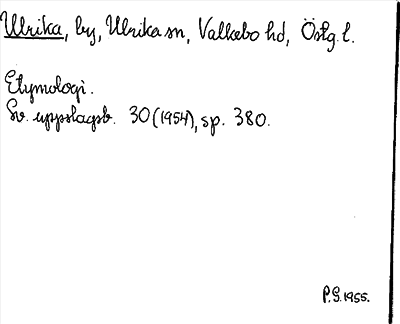 Ulrika, by, Ulrika sn, Valkebo hd, Östg. l.
Etymologi.
Sv. uppslagsb. 30 (1954), sp. 380.
P.G. 1955.